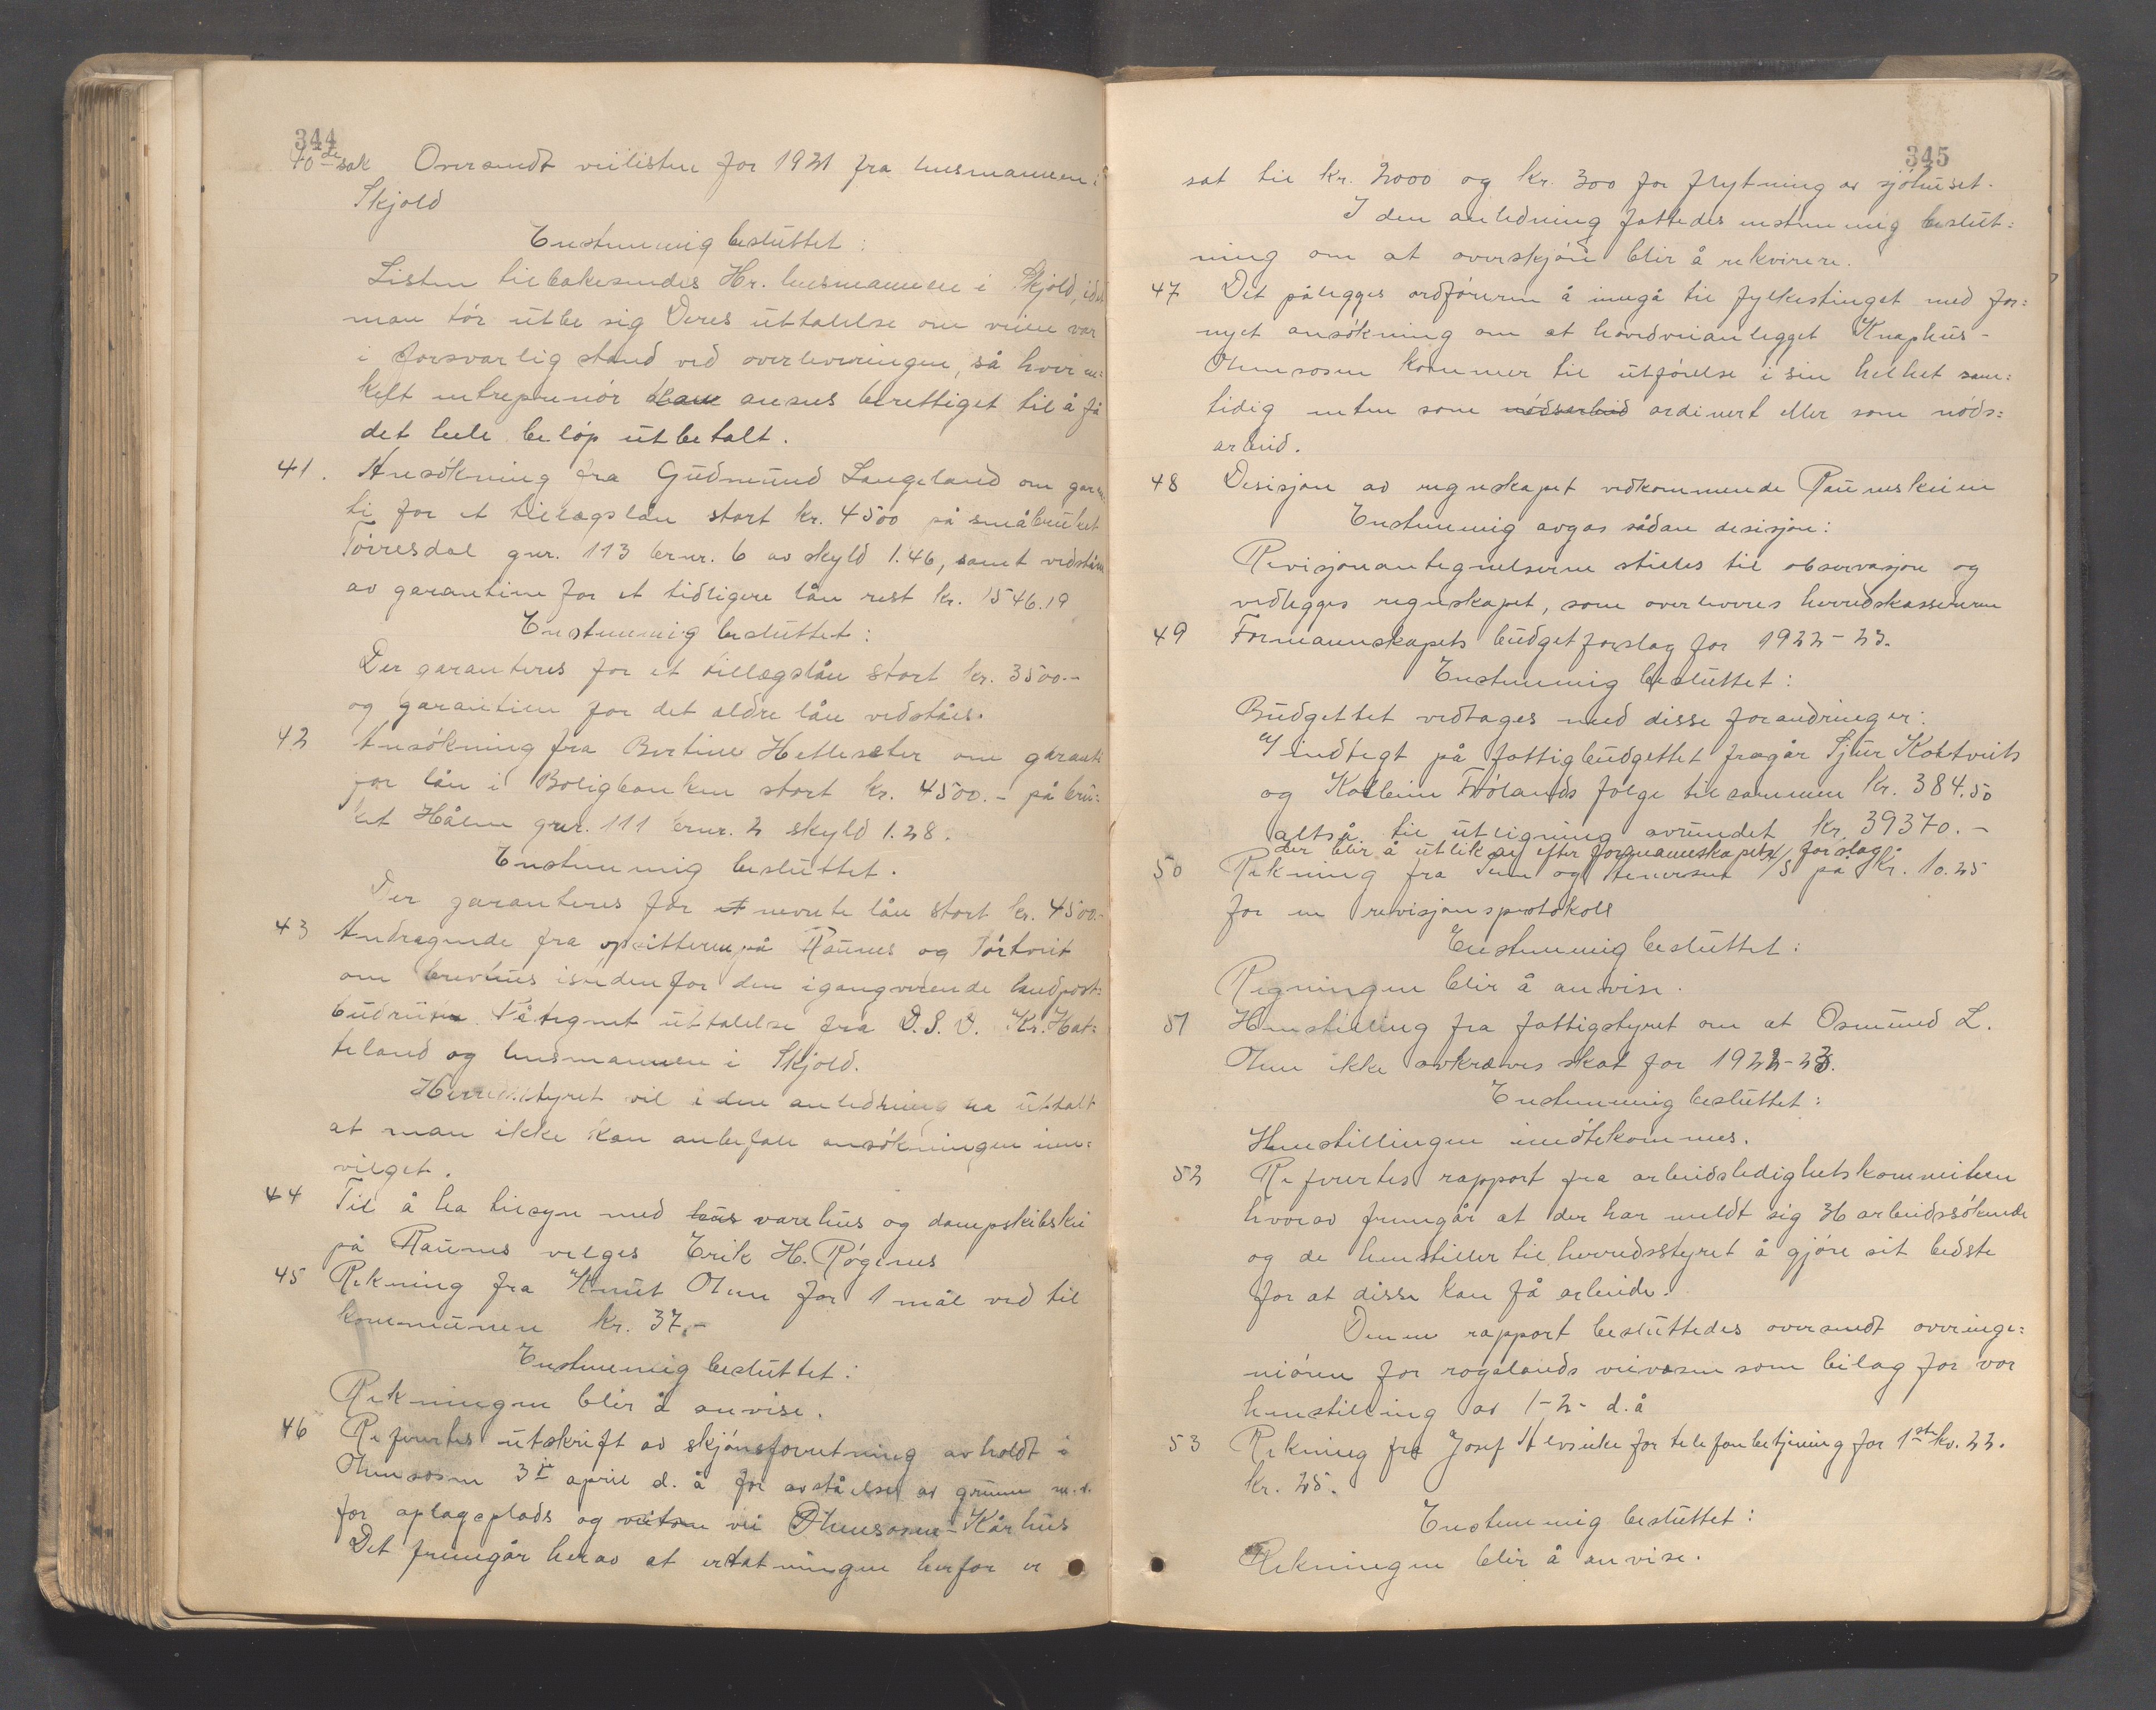 344
40de sak Oversendt veilisten for 1921 fra lensmannen i
Skjold
Enstemmig besluttet:
Listen tilbakesendes Hr. lensmannen i Skjold, idet
man tør utbe sig Deres uttalelse om veien var
i forsvarlig stand ved overleveringen, så hver en=
kelt entreprenør kan ansees berettiget til å få
det hele beløp utbetalt.
41. Ansøkning fra Gudmund Langeland om garan
ti for et tillægslån stort kr. 4500 på småbruket
Tørresdal gnr. 113 brnr. 6 av skyld 1.46, samt vedståen
av garantien for et tidligere lån rest kr. 1546.19
Enstemmig besluttet:
Der garanteres for et tillægslån stort kr. 3500.-
og garantien for det ældre lån vedståes.
42 Ansøkning fra Bertine Hetlesæter om garanti
for lån i Boligbanken stort kr. 4500.- på bru=
ket Hålen gnr. 111 brnr. 2 skyld 1.28.
Enstemmig besluttet.
Der garanteres for et nevnte lån stort kr. 4500.-
43 Andragende fra opsitterne på Raunes og Tørtveit
om brevhus istedenfor den igangverende landpost=
budrute. Påtegnet uttalelse fra D.S.D. Kr. Hat=
teland og lensmannen i Skjold.
Herredstyret vil i den anledning ha uttalt
at man ikke kan anbefale ansøkningen inn=
vilget.
44 Til å ha tilsyn med hus varehus og dampskibskai
på Raunes velges Erik H. Røgenes
45 Rekning fra Knut Ølen for 1 mål ved til
kommunen kr. 37.-
Enstemmig besluttet:
Rekningen blir å anvise.
46 Refertes utskrift av skjønsforretning avholdt i
Ølensosen 3je april d. å for avståelse av grunn m.v.
for oplagsplads og veitom vei Ølensosen-Kårhus
Det fremgår herav at erstatningen herfor er
345
sat til kr. 2000 og kr. 300 for flytning av sjøhuset.
I den anledning fattedes enstemmig beslut=
ning om at overskjøn blir å rekvirere.
47 Det pålegges ordføreren å inngå til fylkestinget med for=
nyet ansøkning om at hovedveianlegget Knaphus-
Ølensosen kommer til utførelse i sin helhet sam=
tidig enten som nødsarbeid ordinert eller som nøds=
arbeid.
48 Desisjon av regnskapet vedkommende Rauneskaien
Enstemmig avgas sådan desisjon:
Revisjonantegnelserne stilles til observasjon og
vedlegges regnskapet, som overleveres herredskassereren
49 Formannskapets budgetforslag for 1922-23.
Enstemmig besluttet:
Budgettet vedtages med disse forandringer:
a/ indtegt på fattigbudgettet fragår Sjur Koktveits
og Kolbein Frølands følge tilsammen kr. 384.50
altså til utligning avrundet kr. 39370.-
der blir å utlikne efter formannskapets forslag
50 Rekning fra Lem og Stenersen 1/5 på kr. 10.25
for en revisjonsprotokoll
Enstemmig besluttet:
Regningen blir å anvise.
51 Henstilling fra fattigstyret om at Osmund L.
Ølen ikke avkræves skat for 1922-23.
Enstemmig besluttet:
Henstillingen imøtekommes.
52 Refertes rapport fra arbeidsledighetskommiteen
hvorav fremgår at der har meldt sig 36 arbeidssøkende
og de henstiller til herredsstyret å gjøre sit bedste
for at disse kan få arbeide.
Denne rapport besluttedes oversendt overinge=
niøren for rogalands veivæsen som bilag for vor
henstilling av 1-2- d.å
53 Rekning fra Josef Alvsvike for telefonbetjening for 1ste kv. 22.
kr. 25.
Enstemmig besluttet:
Rekningen blir å anvise.